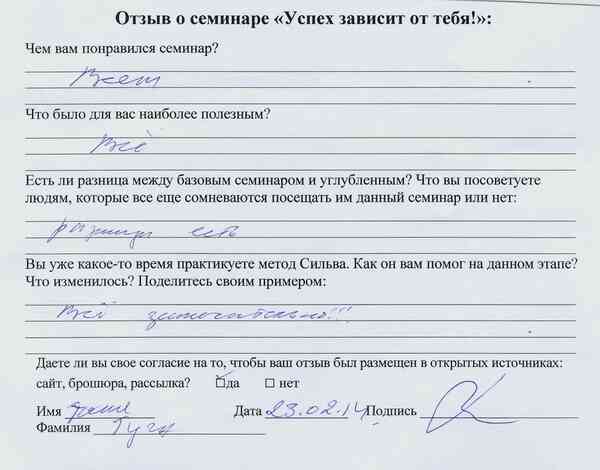 Отзыв о семинаре «Успех зависит от тебя!»:
Чем вам понравился семинар?
Всем
Что было для вас наиболее полезным?
Всё
Есть ли разница между базовым семинаром и углубленным? Что вы посоветуете
людям, которые все еще сомневаются посещать им данный семинар или нет:
разница есть
Вы уже какое-то время практикуете метод Сильва. Как он вам помог на данном этапе?
Что изменилось? Поделитесь своим примером:
Всё замечательно!!!
Даете ли вы свое согласие на то, чтобы ваш отзыв был размещен в открытых источниках:
сайт, брошюра, рассылка? ☑да ☐ нет
Имя Дата 23.02.14 Подпись
Фамилия